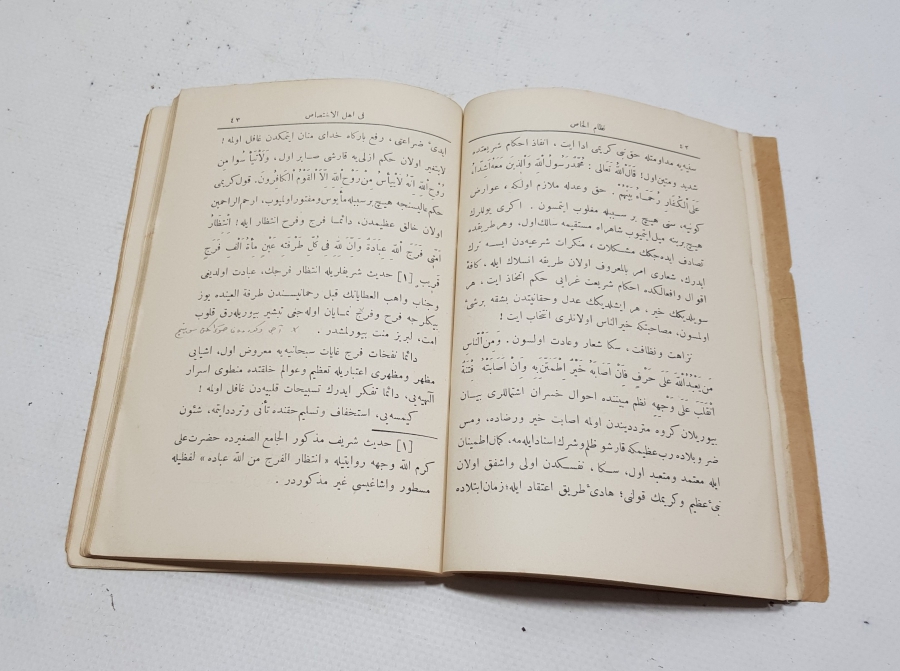 ٤٢
نظام الخاص
سنیه‌یه مداومتله حق نبی كریمی ادا ایت ، انفاذ احكام شریعتده
شدید ومتین اول! قَالَ اللهُ تَعَالٰی : مُحَمَّدٌ رَسُولُ اللهِ وَالَّذِینَ مَعَهُ اَشِدَّاءُ
عَلَی الْكُفَّارِ رُحَمَاءُ بَیْنَهُمْ . حق وعدله ملازم اولكه ، عوارض
كونیه، سنی هیچ بر سببله مغلوب ایتمسون . اكری یوللرك
هیچ برینه میل ایتمیوب شاهراه مستقیمه سالك اول، وهر طریقده
تصادف ایده‌جكك مشكلات ، منكرات شرعیه‌دن ایسه ترك
ایدرك، شعاری امر بالمعروف اولان طریقه انسلاك ایله ، كافهٔ
اقوال وافعالكده احكام شریعت غرایی حكم اتخاذ ایت ، هر
سویلدیكك خیر، هر ایشلدیكك عدل وحقانیتدن بشقه برشی
اولمسون، مصاحبتكه خیر الناس اولانلری انتخاب ایت !
نزاهت ونظافت ، سكا شعار وعادت اولسون . وَمِنَ النَّاسِ
مَنْ یَعْبُدُ اللهَ عَلَی حَرْفٍ فَاِنْ اَصَابَهُ خَیْرٌ اِطْمَئَنَّ بِهِ وَاِنْ اَصَابَتْهُ فِتْنَةٌ
اِنْقَلَبَ عَلَی وَجْهِهِ نظم مبیننده احوال خسران اشتماللری بیان
بیوریلان كروه مترددیندن اولمه اصابت خیر ورضاده، ومس
ضر وبلاده رب عظیمكه قارشو ظلم وشرك اسناد ایله‌مه، كمال اطمینان
ایله معتمد ومتعبد اول، سكا ، نفسكدن اولی واشفق اولان
نبیٔ عظیم وكریمك قولنی؛ هادئ طریق اعتقاد ایله؛ زمان ابتلاده
٤٣
فی اهل الاختصاص
ایدی ضراعتی ، رفع باركاه خدای منان ایتمكدن غافل اولمه !
لایتغیر اولان حكم ازلی‌یه قارشی صابر اول، وَلَاتَیْأَسُوا مِنْ
رَوْحِ اللهِ اِنَّهُ لَایَیْأَسُ مِنْ رَوْحِ اللهِ اِلَّا الْقَوْمُ الْكَافِرُونَ. قول كریمی
حكم عالیسنجه هیچ بر سببله مأیوس ومفتور اولمیوب، ارحم الراحمین
اولان خالق عظیمدن، دائمسا فرج وفرح انتظار ایله! اِنْتِظَارُ
اُمَّتِی فَرَجَ اللهِ عِبَادَةٌ وَاِنَّ لِلهِ فِی كُلِّ طَرْفَةِ عَیْنٍ مِأَةَ اَلْفِ فَرَجٍ
قَرِیبٍ [١] حدیث شریفلریله انتظار فرجك، عبادت اولدیغنی
وجناب واهب العطایانك قبل رحمانیسندن طرفة العینده یوز
بیكلرجه فرح وفرج نمایان اوله‌جغنی تبشیر بیوریله‌رق قلوب
امت، لبریز منت بیورلمشدر .
دائما نفحات فرج غایات سبحانیه‌یه معروض اول، اشیایی
مظهر ومظهری اعتباریله تعظیم وعوالم خلقتده منطوی اسرار
الٓهیه‌یی، دائما تفكر ایدرك تسبیحات قلبیه‌دن غافل اولمه !
كیمسه‌یی، استخفاف وتسلیم حقنده تأنی وتردد ایتمه، شئون
[١] حدیث شریف مذكور الجامع الصغیرده حضرت علی
كرم الله وجهه روایتیله « انتظار الفرج من الله عباده » لفظیله
مسطور واشاغیسی غیر مذكوردر .